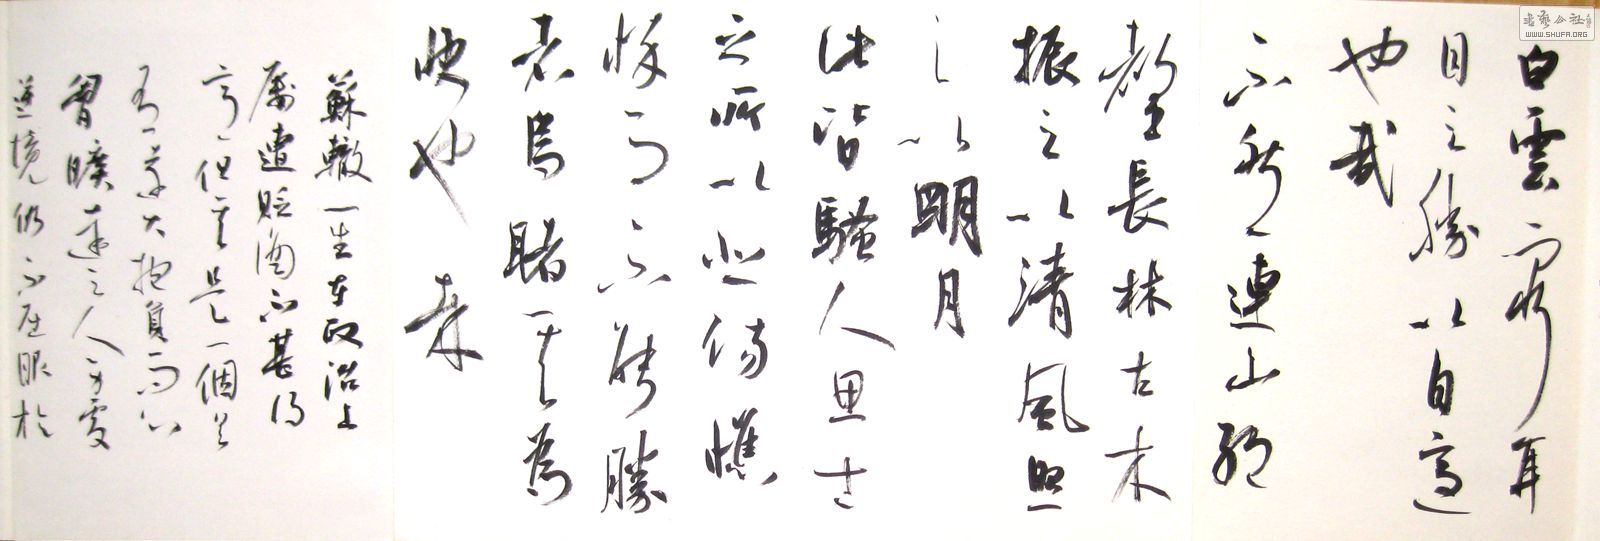 白雲窮耳
目之勝以自適
也哉
不然連山絕
壑長林古木
振之以清風照
之以明月
此皆騷人思士
之所以悲傷憔
悴而不能勝
者烏睹其為
快也哉
蘇轍一生在政治上
屢遭貶謫不甚得
意但其是一個具
有遠大抱負而心
胸曠達之人身處
逆境仍不屈服於
書藝公社
WWW.SHUFA.ORG